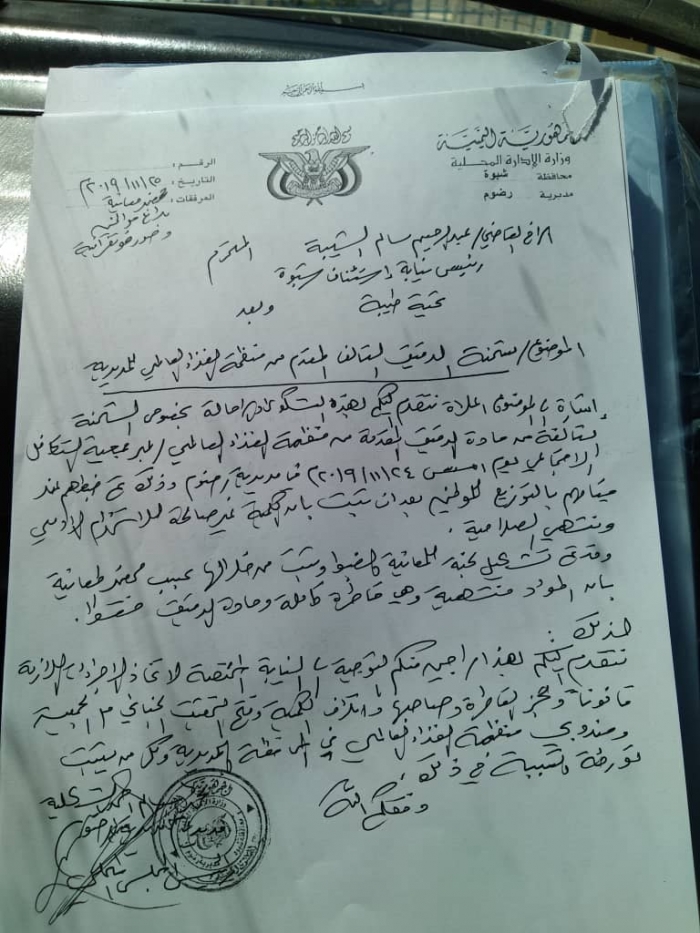 بسم الله الرحمن الرحيم
جمهورية اليمنية
وزارة الإدارة المحلية
محافظة شبوة
مديرية رضوم
الرقم :
التاريخ : ٢٠١٩/١١/٢٥م
المرفقات :
محضر معاينة
وصور فوتوغرافية
الاخ القاضي/ عبدالرحيم سالم الشيبة المحترم
رئيس نيابة استئناف شبوة
تحية طيبة وبعد
الموضوع/ شحنة الدقيق التالف المقدم من منظمة الغذاء العالمي للمديرية
إشارة بالموضوع اعلاة نتقدم اليكم بهذه الشكوى احالة بخصوص الشحنة
التالفة من مادة الدقيق المقدمة من منظمة الغذاء العالمي/ عبر جمعية التكافل
الاجتماعي يوم امس ٢٠١٩/١١/٢٤م في مديرية رضوم وذلك تم ضبطهم عند
قيامهم بالتوزيع للمواطنين بعد ان ثبت بان الكمية غير صالحة للاستخدام الآدمي
ومنتهي الصلاحية .
وقد تم تشكيل لجنة للمعاينة وثبت من خلالها حسب محضر المعاينة
بان المواد منتهية وهي قاطرة كاملة ومادة الدقيق فقط .
لذلك :
نتقدم اليكم بهذا راجين منكم التوجية بالنيابة المختصة لاتخاذ الاجراءات اللازمة
قانونا وحجز القاطرة وصاحبها واتلاف الكمية وفتح التحقيق الجنائي مع الجمعية
ومندوبي منظمة الغذاء العالمي في المحافظة والمديرية وكل من يثبت
تورطة في ذلك ،
وفقكم الله